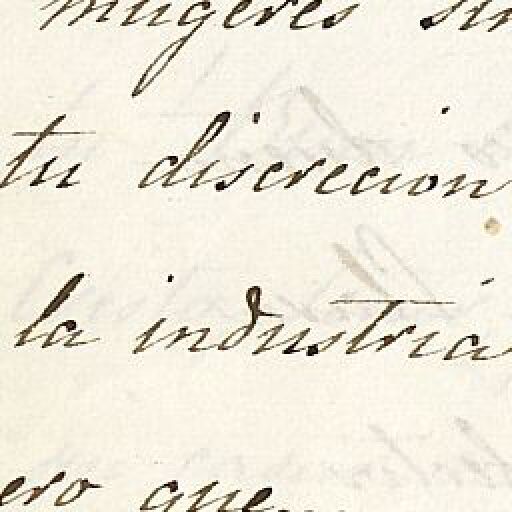 mugeres sin
tu discrecion
la industria
ero que